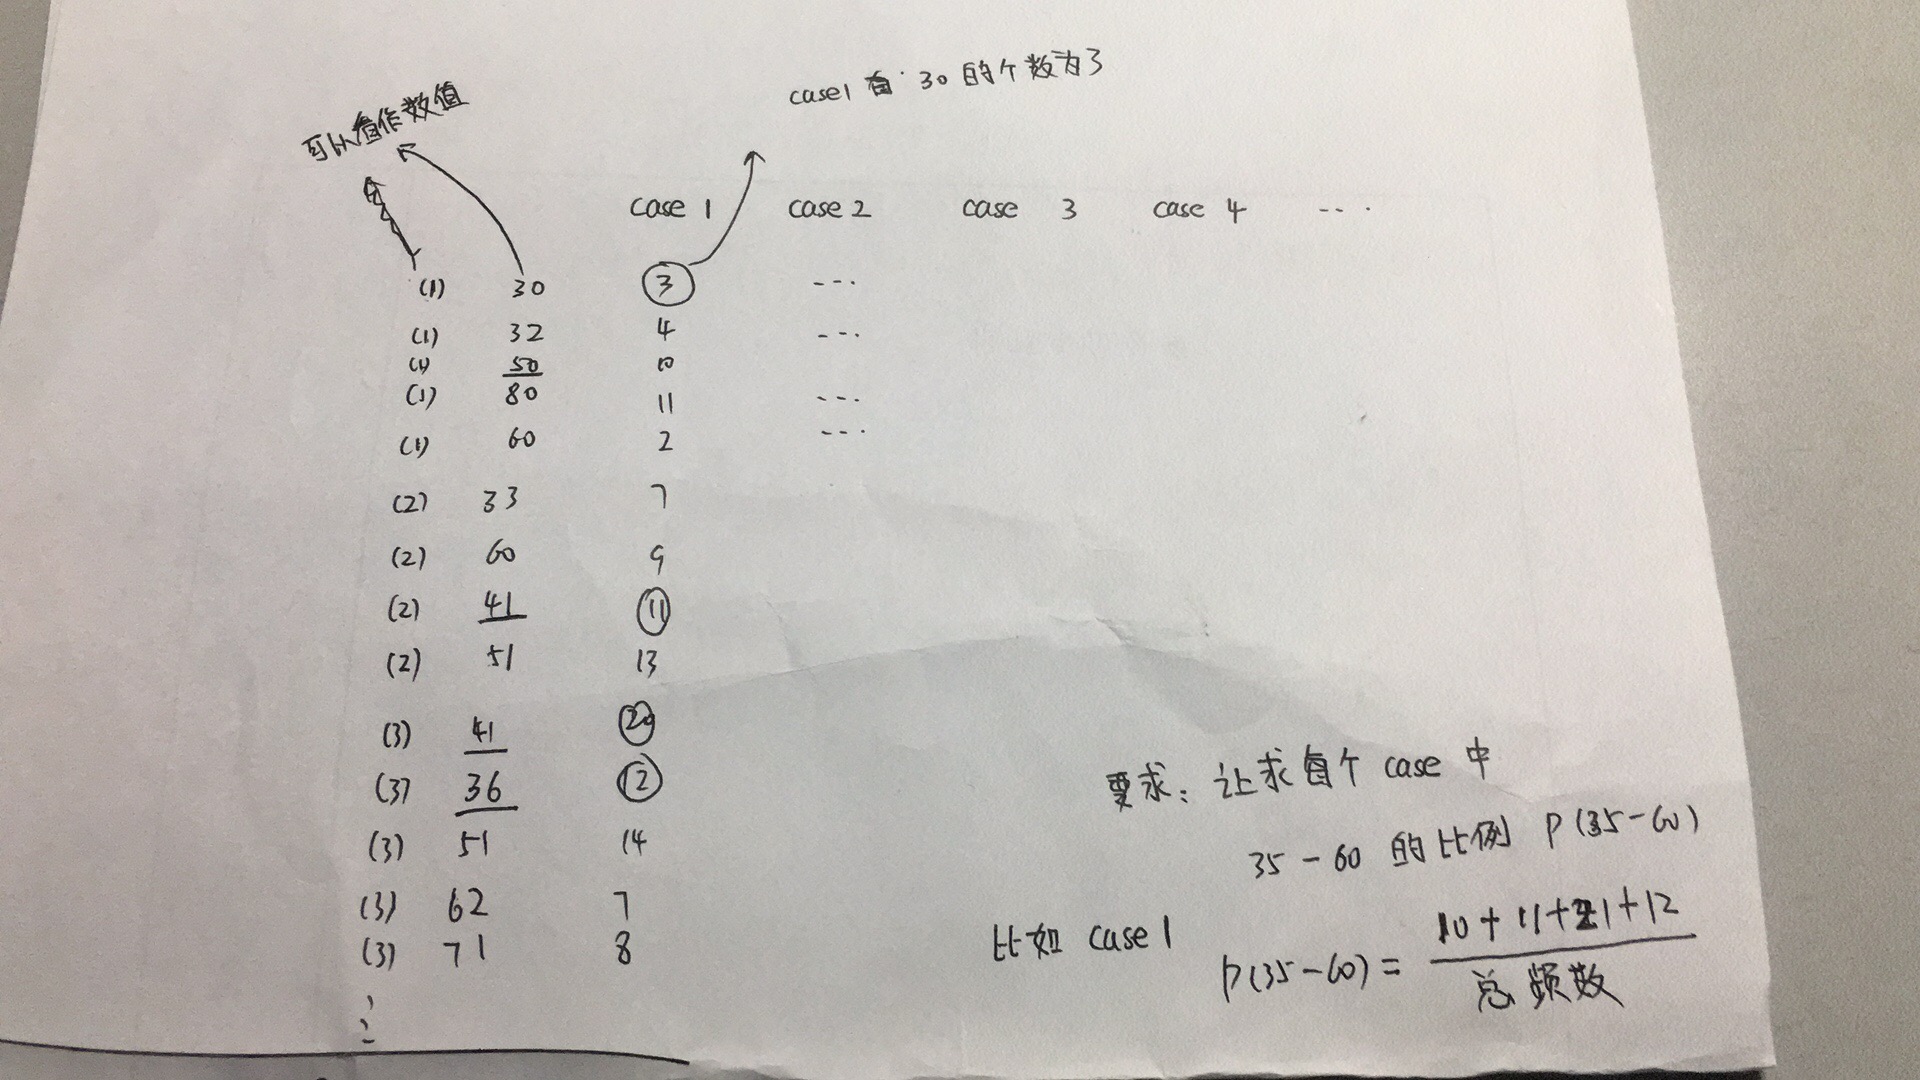 case1 有 30 的个数为3
可以看作数值
case 1 case 2 case 3 case 4 ...
(1) 30 3 ...
(1) 32 4 ...
(1) 50 10
(1) 80 11 ...
(1) 60 2 ...
(2) 33 7
(2) 60 9
(2) 41 11
(2) 51 13
(3) 41 20
(3) 36 12
(3) 51 14
(3) 62 7
(3) 71 8
要求: 让求每个 case 中
35-60 的比例 P(35-60)
比如 case 1
P(35-60) =
10+11+21+12
总频数